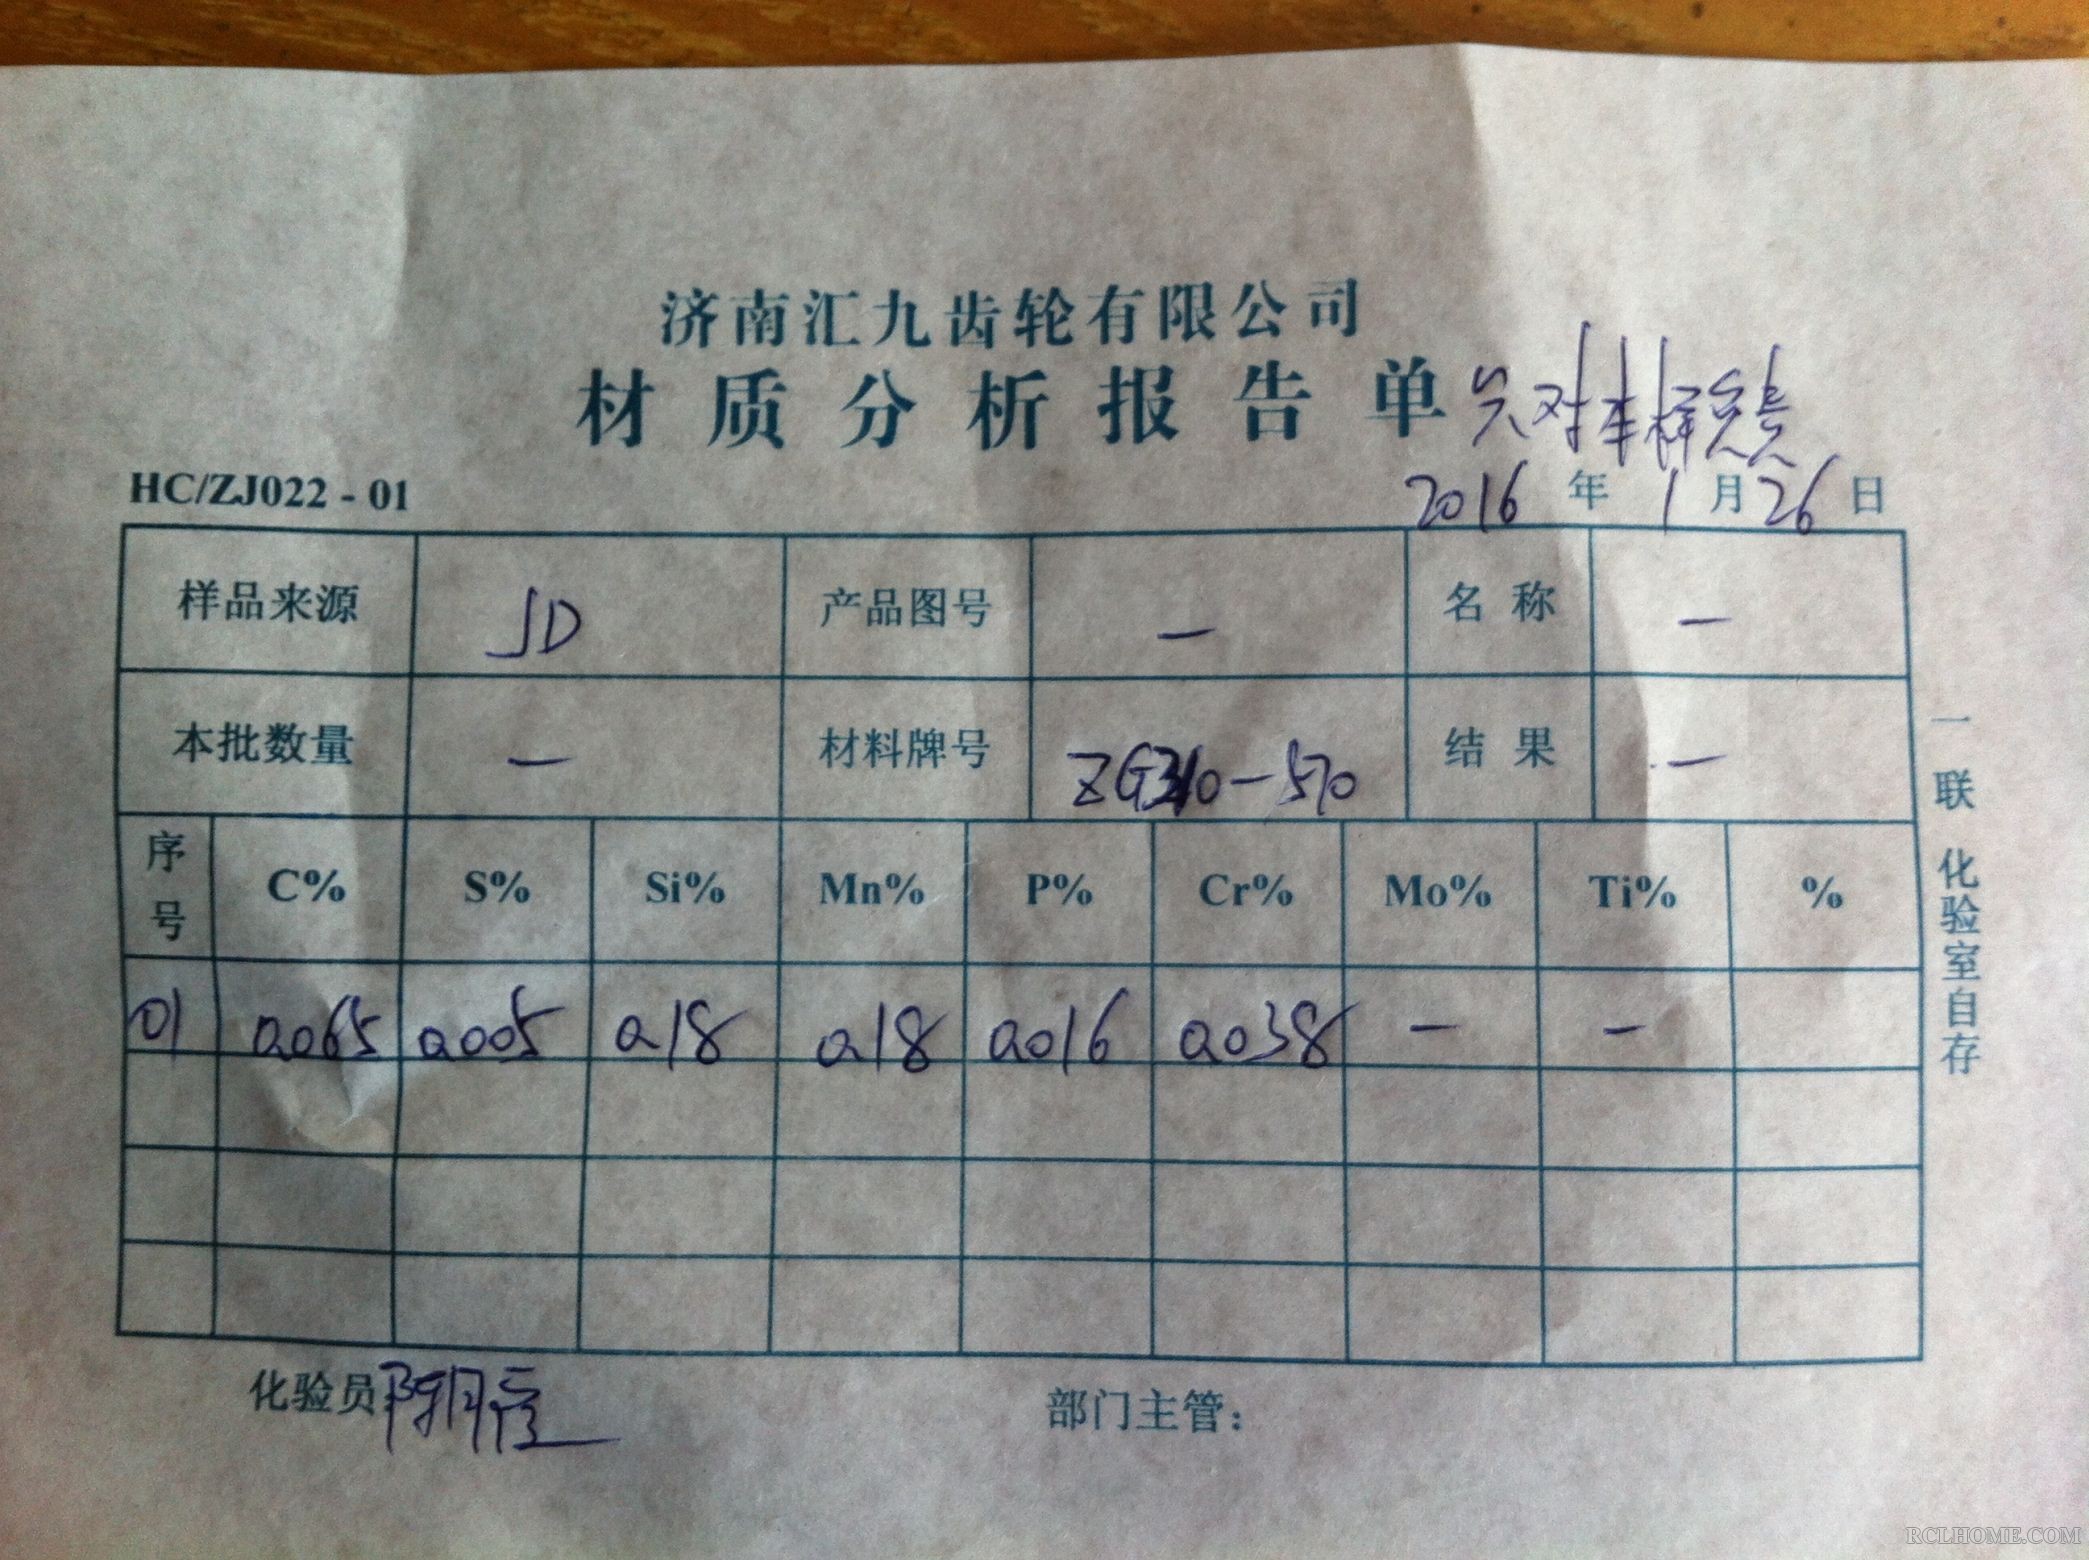 济南汇九齿轮有限公司
材质分析报告单 只对本样负责
HC/ZJ022 - 01 2016 年 1 月 26 日
样品来源 JD 产品图号 — 名 称 —
本批数量 — 材料牌号 ZG310-570 结 果 —
序号 C% S% Si% Mn% P% Cr% Mo% Ti% %
01 0.065 0.005 0.18 0.18 0.016 0.038 — —
化验员 部门主管：
一联 化验室自存
RCLHOME.COM